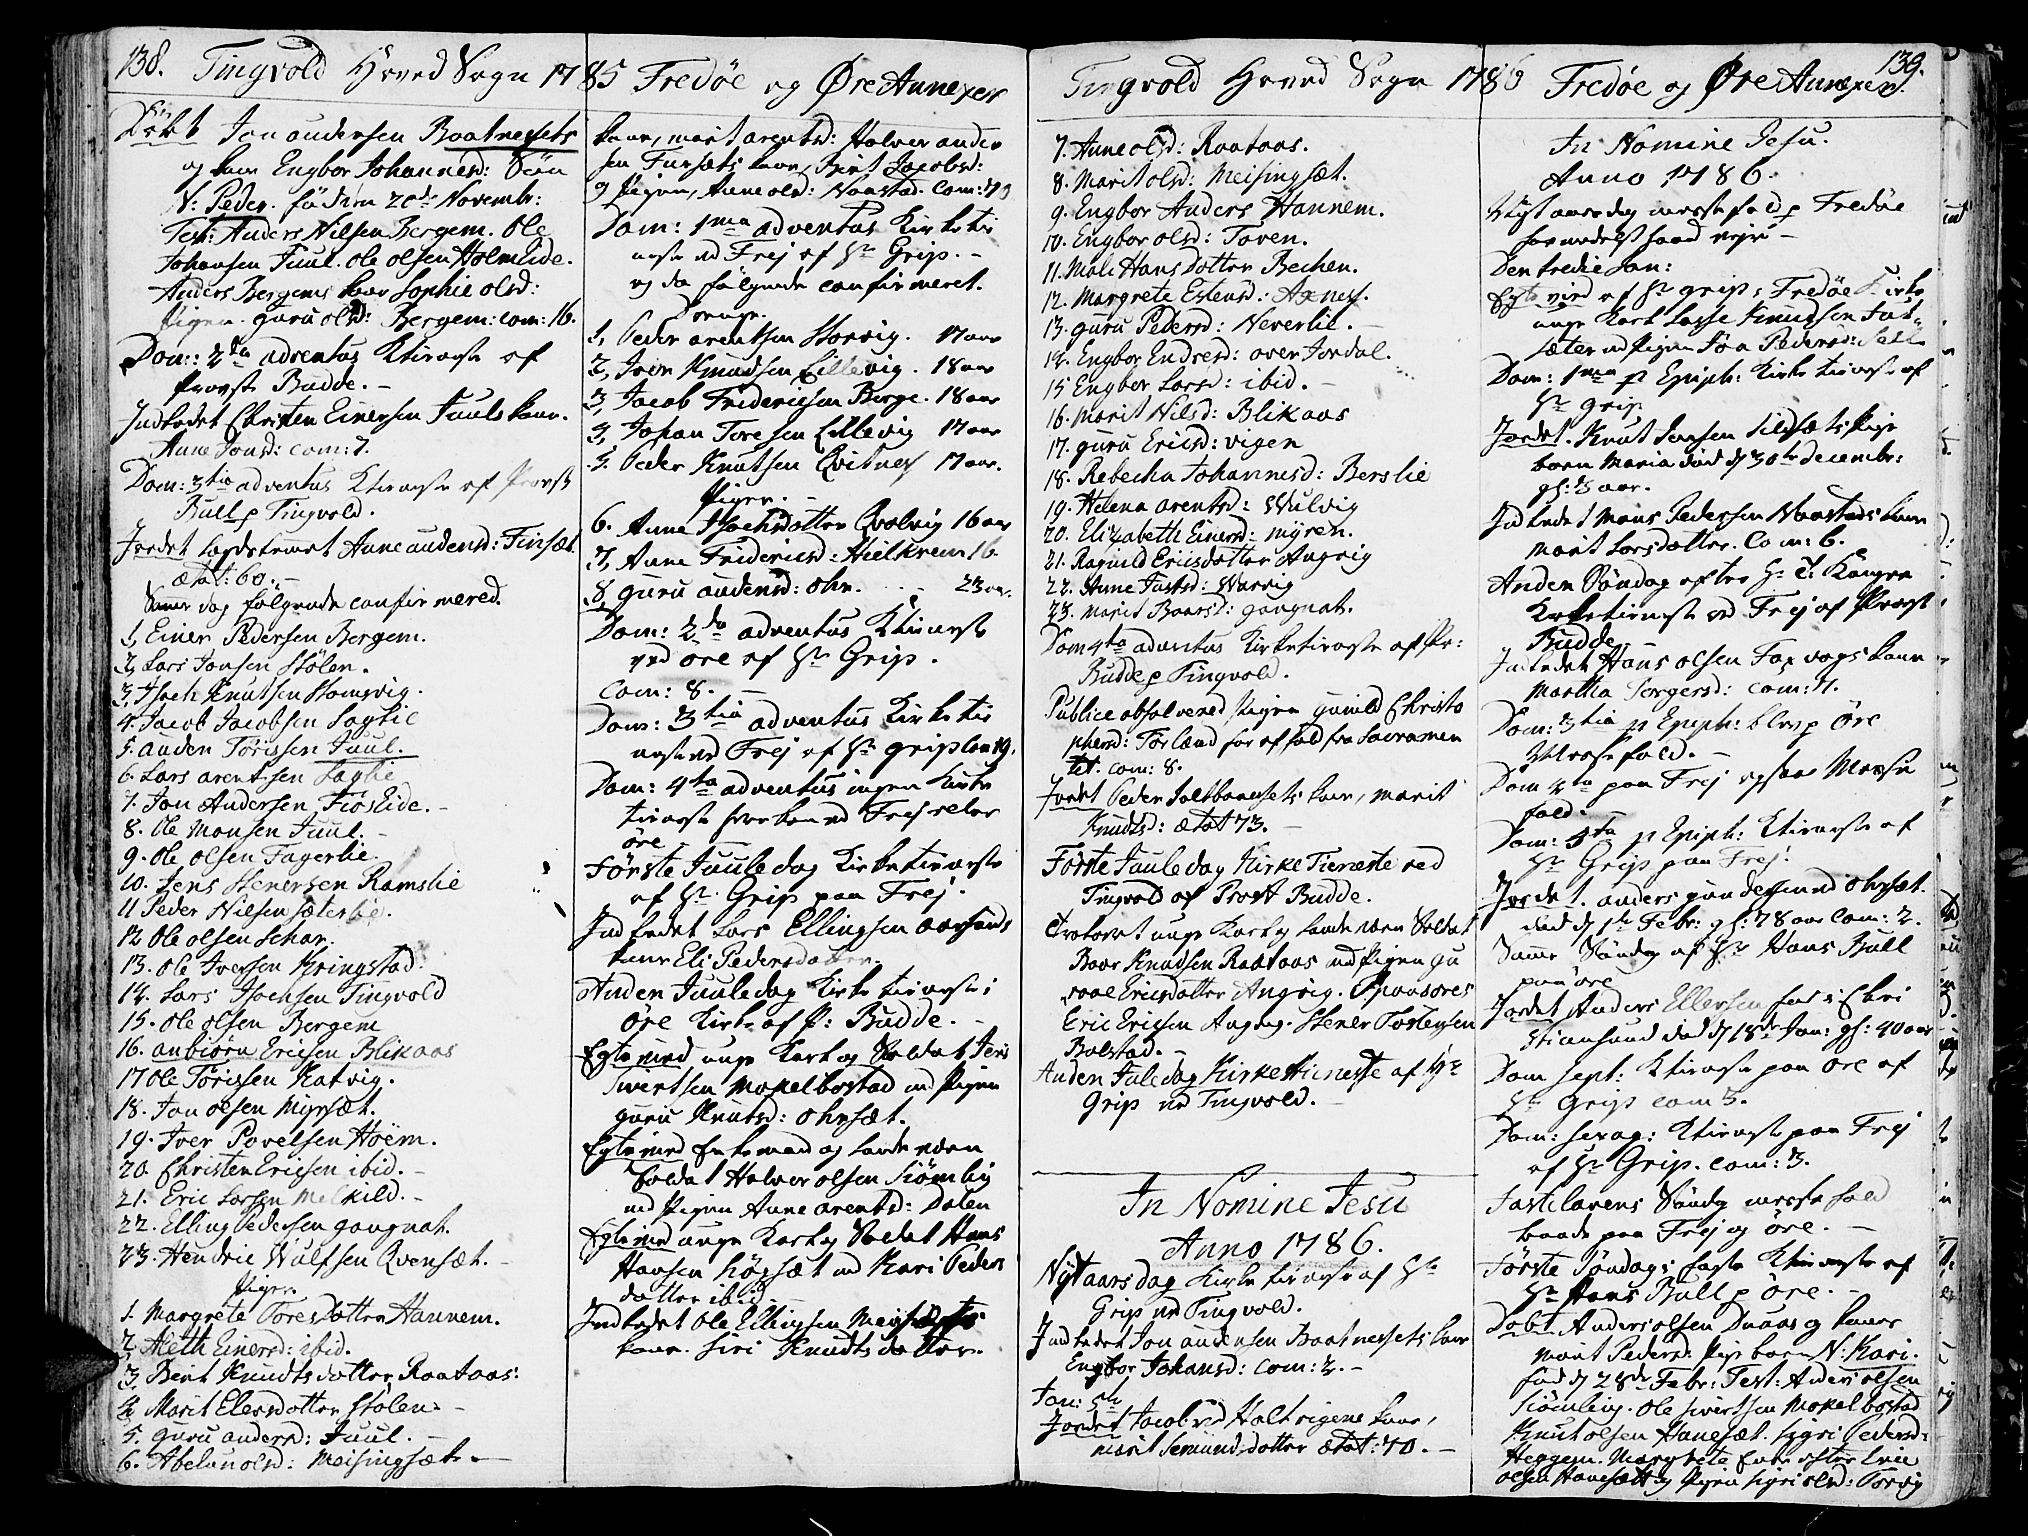 138. Tingvold Hoved Sogn 1785 Fredøe og Øre Annexer
Døbt Jon andersen Baatnessets
og kone Engbor Johannesd: Søn
N: Peder. født den 20de Novembr:
Test: Anders Nilsen Bergem. Ole
Johansen Juul. ole olsen Holmlide.
Anders Bergems kone Sophie olsd:
Pigen. guru olsd: Bergem: com: 16.
Dom: 2da adventus Ktieneste af
Provst Budde. -
Indledet Christen Einersen Juuls kone.
Anne Jonsd: com: 7.
Dom: 3tia adventus Ktieneste af Provst
Bull p Tingvold.
Jordet Anne andersd: Finset
Ætat: 60. -
Samme dag følgende confirmered.
1, Einer Pedersen Bergem.
2, Lars Jonsen Stølen.
3, Isach Knutsen Homvig.
4. Jacob Jacobsen Saglie
5. anden Tørissen Juul.
6. Lars arentsen Saglie
7. Jon Andersen Fiøslide. -
8. Ole Monsen Juul. -
9. Ole olsen Fagerlie.
10. Jens Stenersen Ramslie
11 Peder Nilsen sæterlie.
12 Ole olsen Schar.
13. Ole Iversen Kringstad.
14. Lars Isachsen Tingvold
15. Ole olsen Bergem
16. anbiørn Ericsen Blikaas
17 Ole Tørissen Katvig.
18. Jon olsen Myrsæt.
19. Iver Povelsen Høem.
20. Christen Ericsen ibid. -
21. Eric Larsen Melkild. -
22. Elling Pedersen gangnat.
23. Hendric Wulfsen Qvensæt. -
Piger
1. Margrete Tores dotter Hannem.
2, Aleth Einersd: ibid.
3, Berit Knudts dotter Raataas:
4, Marit Elersdotter Stølen. -
5. guru andersd: Juul. -
6. Abelun olsd: Meisingsæt. -
kone, marit arentsd: Halvor ander
sen Fursæts kone, Berit Jacobsd:
og Pigen, Anne olsd: Naastad. Com: 79
Dom: 1ma adventus Kirketie
neste ved Frej af Hr Grip. -
og da følgende confirmeret.
Drenge.
1, Peder arentsen Storvig. 17 aar
2, Iver Knudsen Lillevig. 18 aar
3, Jacob Fridericsen Berge. 18 aar
4, Johan Toresen Lillevig 17 aar
5. Peder Knutsen Qvitnes 17 aar.
Piger. -
6. Anne Isachsdotter Qvalvig 16 aar
7, Anne Fridericsd: Hielkrem 16.
8 guru andersd: ohr. 23 aar.
Dom: 2do adventus Ktieneste
ved øre af Hr Grip.
Com: 8. -
Dom: 3tia adventus Kirketie
neste ved Frej af Hr grip com 19.
Dom: 4ta adventus ingen Kirke
tieneste hverken ved Frej eller
øre
Første Juuledag Kirketieneste
af Hr. Grip paa Frej.
Indledet Lars Ellingsen aarsunds
kone Eli Pedersdatter.
Anden Juuledag Kirketieneste i
Øre Kirke af P: Budde. -
Egtevied unge Karl og Soldat Jens
Siwertsen Mokelbostad med Pigen
guru Knutsd: ohrsæt.
Egtevied Enkemand og landeværn
Soldat Halvor olsen Siømlig
med Pigen Anne arentsd: Dalen
Egtevied unge Karl og Soldat Hans
Hansen Høgsæt med Kari Peders
datter ibid.
Indledet Ole Ellingsen Meisingsæts
kone. Siri Knudtsdatter.
Tingvold Hoved Sogn 1786 Fredøe og Øre Annexer. 139.
7. Anne olsd: Raataas.
8. Marit olsd: Meisingsæt.
9. Engbor Anders Hannem.
10. Engbor olsd: Toven.
11. Mali Hans Dotter Bechen.
12. Margrete Estensd: Axnes.
13. guru Pedersd: Neverlie. -
14. Engbor Endresd: over Jordal.
15 Engbor Larsd: ibid. -
16. Marit Nilsd: Blikaas
17. guru Ericsd: vigen
18. Rebecha Johannesd: Berslie
19. Helena arentsd: Wulvig
20. Elizabeth Einersd: myren.
21. Ragnild Ericsdotter Angvig
22. Anne Justsd: Warvig
23. Marit Baarsd: gangnat.
Dom 4ta adventus Kirketieneste af Pr:
Budde p Tingvold.
Publice absolvered Pigen gunild Christo
phersd: Torland for affald fra Sacramen
tet. com: 8.
Jordet Peder Saltbaanesets kone, Marit
Knudtsd: Ætat 73. -
Første Juuledag Kirke Tieneste ved
Tingvold af Prost Budde.
Troloved unge Karl og landeværn Soldat
Baar Knudsen Raataas med Pigen gu
roae Ericsdotter Angvig. Sponsores
Eric Ericsen Angvig. Stener Torstensen
Bolstad. -
Anden Juledag Kirketieneste af Hr
Grip ved Tingvold. -
In Nomine Jesu
Anno 1786.
Nytaarsdag Kirke tieneste af Hr
Grip ved Tingvold.
Indledet Jon andersen Baatnessets kone
Engbor Johansd: com: 2. -
Jan: 5te
Jordet Jacob ved Holtvigens kone,
marit Semundsdotter Ætat: 70. -
In Nomine Jesu.
Anno 1786.
Nytaarsdag messefald p Fredøe
formedelst haard vejr -
Den tredie Jan:
Egteviet af Hr grip i Fredøe Kirke
unge Karl Lasse Knudsen Fur-
sæter med Pigen Pedersd:
Dom: 1ma p Epiph: Kirketieneste af
Hr grip
Jordet. Knut Jensen Pige
barn Maria død d 30te decembr:
gl: 3 aar.
Indledet Mons Pedersen Naastads kone
Marit Larsdotter. Com: 6.
Anden Søndag efter H: 3 Konger
Kirketieneste ved Frej af Provst
Budde
Indledet Hans olsen Fosvogs kone
Martha Torgersd: com: 7.
Dom: 3tia p Epiph: blev p øre
Messefald. -
Dom 4ta paa Frej ogsaa Messe
fald.
Dom: 5ta p Epiph: Ktieneste af
Hr Grip paa Frej.
Jordet. anders gundersen ved ohrsæt.
død d 1te Febr: gl: 78 aar Com: 2.
Samme Søndag af Hr Hans Bull
paa øre
Jordet Anders Ellefsen fød i Chri
stiansund død d 18de Jan: gl: 40 aar
Dom sept: Ktieneste paa øre af
Hr Grip com 5.
Dom: sexag: Ktieneste paa Frej
af Hr Grip. com: 3.
Fastelavens Søndag messefald
baade paa Frej og øre. -
Første Søndag i faste Ktieneste af
Hr Hans Bull p øre. -
Døbt Anders olsen Duaas og kones
Marit Pedersd: Pige barn N: Kari.
fød d 28de Febr: Test: Anders olsen
Siømling. ole Siwertsen Mokelbostad
Knut olsen Hanesæt. Sigri Pedersd:
Heggem. Margrete Enke efter Eric
olsen Hanesæt og Pigen Sigri olsd: Torvig